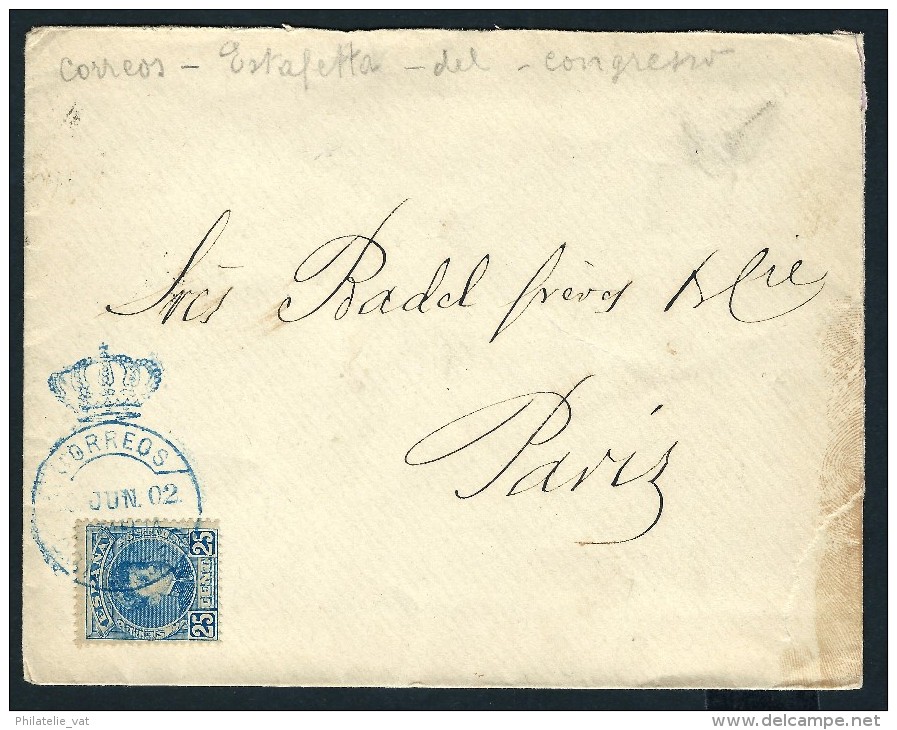 correos - Estafetta - del - congresso
Srēs Badel frères & Cie
Paris
CORREOS
JUN. 02
ESPAÑA
CORREOS
25 CENT 25
Philatelie_vat
www.delcampe.net